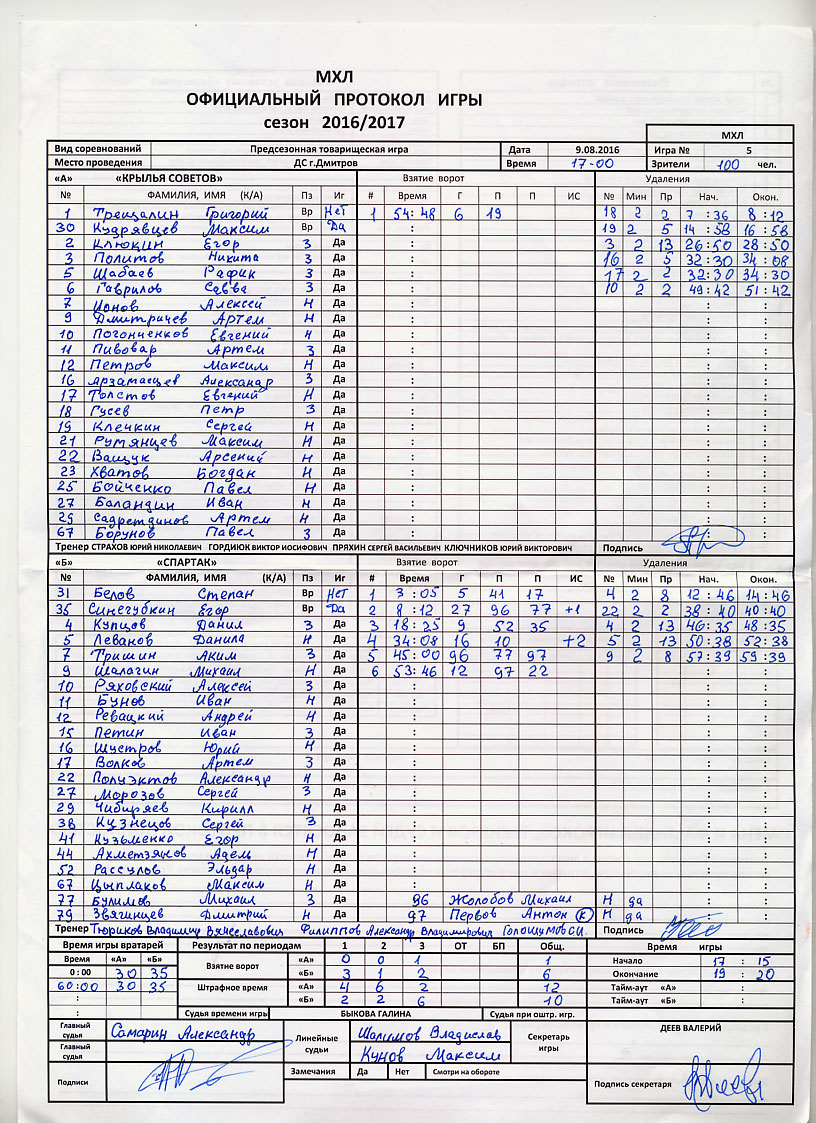 МХЛ
ОФИЦИАЛЬНЫЙ ПРОТОКОЛ ИГРЫ
сезон 2016/2017
МХЛ
Вид соревнований Предсезонная товарищеская игра Дата 9.08.2016 Игра № 5
Место проведения ДС г.Дмитров Время 17-00 Зрители 100 чел.
«А» «КРЫЛЬЯ СОВЕТОВ» Взятие ворот Удаления
№ ФАМИЛИЯ, ИМЯ (К/А) Пз Иг # Время Г П П ИС № Мин Пр Нач. Окон.
1 Трещалин Григорий Вр Нет 1 54:48 6 19 18 2 2 7:36 8:12
30 Кудрявцев Максим Вр Да : 19 2 5 14:58 16:58
2 Клюкин Егор З Да : 3 2 13 26:50 28:50
3 Политов Никита З Да : 16 2 5 32:30 34:08
5 Шабаев Рафик З Да : 17 2 2 32:30 34:30
6 Гаврилов Савва З Да : 10 2 2 49:42 51:42
7 Ионов Алексей Н Да : : :
9 Дмитричев Артем Н Да : : :
10 Погонченков Евгений Н Да : : :
11 Пивовар Артем З Да : : :
12 Петров Максим Н Да : : :
16 Арзамасцев Александр З Да : : :
17 Толстов Евгений Н Да : : :
18 Гусев Петр З Да : : :
19 Клечкин Сергей Н Да : : :
21 Румянцев Максим Н Да : : :
22 Ващук Арсений Н Да : : :
23 Хватов Богдан Н Да : : :
25 Бойченко Павел Н Да : : :
27 Баландин Иван Н Да : : :
29 Садретдинов Артем Н Да : : :
67 Борунов Павел З Да : : :
Тренер СТРАХОВ ЮРИЙ НИКОЛАЕВИЧ ГОРДИЮК ВИКТОР ИОСИФОВИЧ ПРЯХИН СЕРГЕЙ ВАСИЛЬЕВИЧ КЛЮЧНИКОВ ЮРИЙ ВИКТОРОВИЧ Подпись
«Б» «СПАРТАК» Взятие ворот Удаления
№ ФАМИЛИЯ, ИМЯ (К/А) Пз Иг # Время Г П П ИС № Мин Пр Нач. Окон.
31 Белов Степан Вр Нет 1 3:05 5 41 17 4 2 8 12:46 14:46
35 Синегубкин Егор Вр Да 2 8:12 27 96 77 +1 22 2 2 38:40 40:40
4 Купцов Данил З Да 3 18:25 9 52 35 4 2 13 46:35 48:35
5 Леванов Данила Н Да 4 34:08 16 10 +2 5 2 13 50:38 52:38
7 Тришин Аким З Да 5 45:00 96 77 97 9 2 8 57:39 59:39
9 Шалагин Михаил Н Да 6 53:46 12 97 22 : :
10 Ряховский Алексей З Да : : :
11 Бунов Иван Н Да : : :
12 Ревацкий Андрей Н Да : : :
15 Петин Иван З Да : : :
16 Шустров Юрий Н Да : : :
17 Волков Артем З Да : : :
22 Полуэктов Александр Н Да : : :
27 Морозов Сергей З Да : : :
29 Чибиряев Кирилл Н Да : : :
38 Кузнецов Сергей З Да : : :
41 Кузьменко Егор Н Да : : :
44 Ахметзянов Адель Н Да : : :
52 Рассулов Эльдар Н Да : : :
67 Цыплаков Максим Н Да : : :
77 Булимов Михаил З Да 96 Жолобов Михаил Н да
79 Звягинцев Дмитрий Н Да 97 Первов Антон (К) Н да
Тренер Тюриков Владимир Вячеславович Филиппов Александр Владимирович Подпись
Время игры вратарей Результат по периодам 1 2 3 ОТ БП Общ. Время игры
Время «А» «Б» Взятие ворот «А» 0 0 1 1 Начало 17 : 15
0:00 30 35 «Б» 3 1 2 6 Окончание 19 : 20
60:00 30 35 Штрафное время «А» 4 6 2 12 Тайм-аут «А» :
: «Б» 2 2 6 10 Тайм-аут «Б» :
: Судья времени игры БЫКОВА ГАЛИНА Судья при оштр. игр.
Главный судья Самарин Александр Линейные судьи Шалимов Владислав Секретарь игры ДЕЕВ ВАЛЕРИЙ
Главный судья Кунов Максим
Подписи Замечания Да Нет Смотри на обороте Подпись секретаря